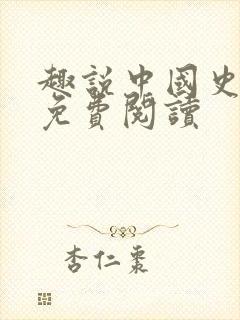 趣說中國史
免費閱讀
杏仁棗